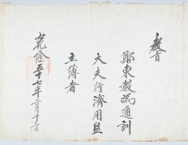 教旨
鄭東教爲通訓
大夫行濟用監
主簿者
乾隆五十七年三月十二日